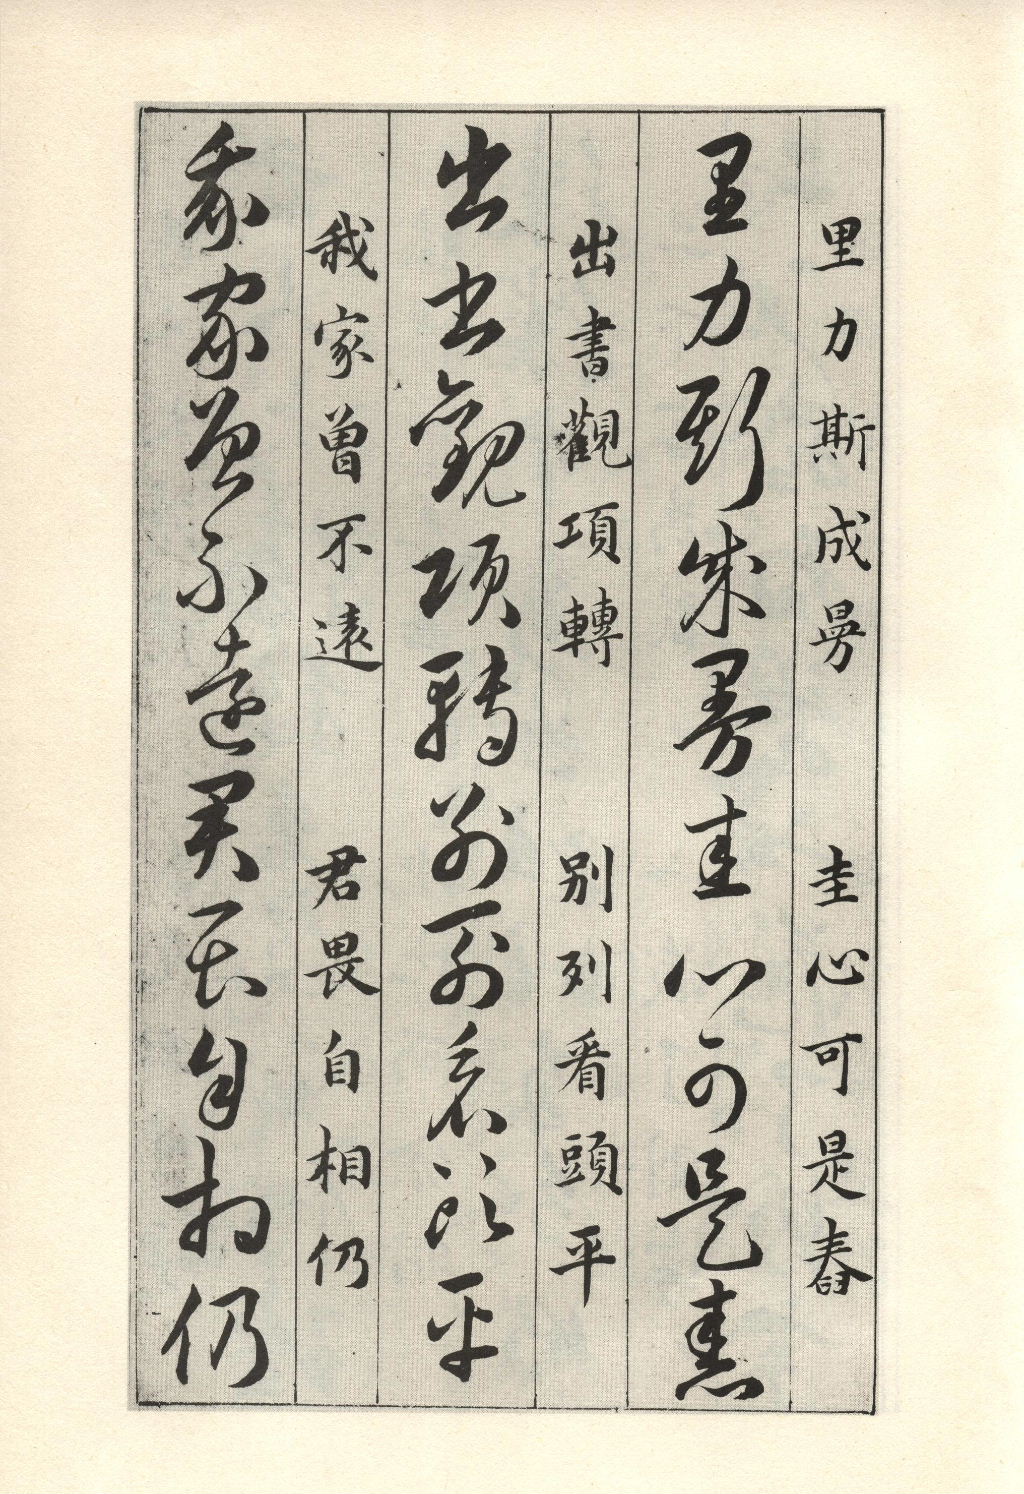 里力斯成曼 圭心可是舂
里力斯成曼圭心可是舂
出書觀項轉 別列看頭平
出書觀項轉別列看頭平
我家曾不遠 君畏自相仍
我家曾不遠君畏自相仍